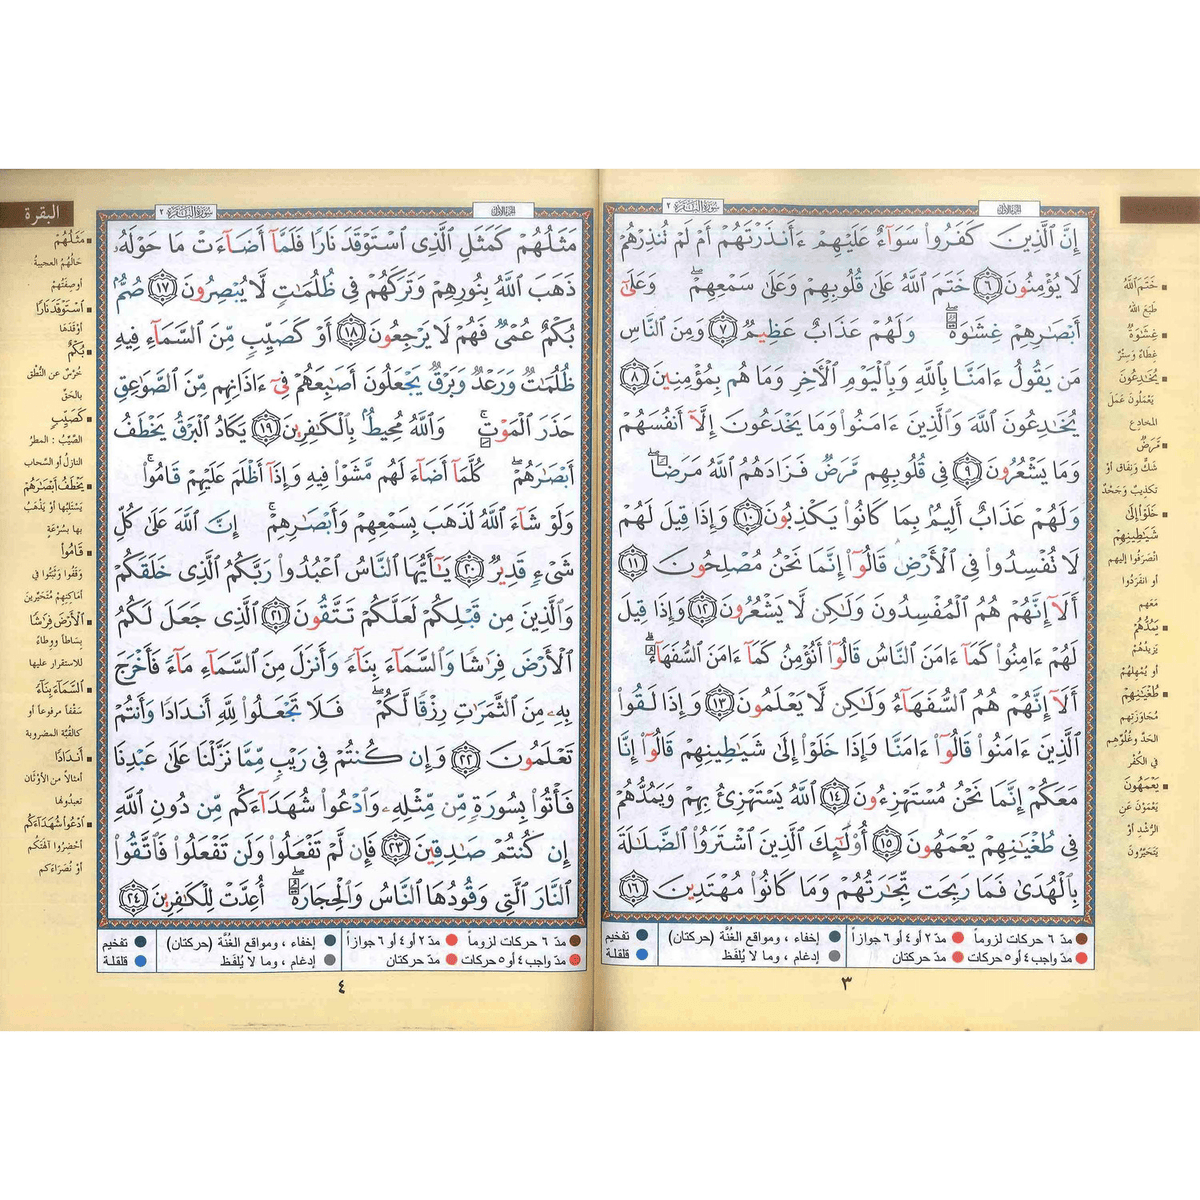 سورة البقرة ٢
الجزء الأول
إِنَّ ٱلَّذِينَ كَفَرُوا۟ سَوَآءٌ عَلَيْهِمْ ءَأَنذَرْتَهُمْ أَمْ لَمْ تُنذِرْهُمْ
لَا يُؤْمِنُونَ ٦ خَتَمَ ٱللَّهُ عَلَىٰ قُلُوبِهِمْ وَعَلَىٰ سَمْعِهِمْ ۖ وَعَلَىٰٓ
أَبْصَٰرِهِمْ غِشَٰوَةٌ ۖ وَلَهُمْ عَذَابٌ عَظِيمٌ ٧ وَمِنَ ٱلنَّاسِ
مَن يَقُولُ ءَامَنَّا بِٱللَّهِ وَبِٱلْيَوْمِ ٱلْأَخِرِ وَمَا هُم بِمُؤْمِنِينَ ٨
يُخَٰدِعُونَ ٱللَّهَ وَٱلَّذِينَ ءَامَنُوا۟ وَمَا يَخْدَعُونَ إِلَّآ أَنفُسَهُمْ
وَمَا يَشْعُرُونَ ٩ فِى قُلُوبِهِم مَّرَضٌ فَزَادَهُمُ ٱللَّهُ مَرَضًا ۖ
وَلَهُمْ عَذَابٌ أَلِيمٌۢ بِمَا كَانُوا۟ يَكْذِبُونَ ١٠ وَإِذَا قِيلَ لَهُمْ
لَا تُفْسِدُوا۟ فِى ٱلْأَرْضِ قَالُوٓا۟ إِنَّمَا نَحْنُ مُصْلِحُونَ ١١
أَلَآ إِنَّهُمْ هُمُ ٱلْمُفْسِدُونَ وَلَٰكِن لَّا يَشْعُرُونَ ١٢ وَإِذَا قِيلَ
لَهُمْ ءَامِنُوا۟ كَمَآ ءَامَنَ ٱلنَّاسُ قَالُوٓا۟ أَنُؤْمِنُ كَمَآ ءَامَنَ ٱلسُّفَهَآءُ ۗ
أَلَآ إِنَّهُمْ هُمُ ٱلسُّفَهَآءُ وَلَٰكِن لَّا يَعْلَمُونَ ١٣ وَإِذَا لَقُوا۟
ٱلَّذِينَ ءَامَنُوا۟ قَالُوٓا۟ ءَامَنَّا وَإِذَا خَلَوْا۟ إِلَىٰ شَيَٰطِينِهِمْ قَالُوٓا۟ إِنَّا
مَعَكُمْ إِنَّمَا نَحْنُ مُسْتَهْزِءُونَ ١٤ ٱللَّهُ يَسْتَهْزِئُ بِهِمْ وَيَمُدُّهُمْ
فِى طُغْيَٰنِهِمْ يَعْمَهُونَ ١٥ أُو۟لَٰٓئِكَ ٱلَّذِينَ ٱشْتَرَوُا۟ ٱلضَّلَٰلَةَ
بِٱلْهُدَىٰ فَمَا رَبِحَت تِّجَٰرَتُهُمْ وَمَا كَانُوا۟ مُهْتَدِينَ ١٦
خَتَمَ ٱللَّهُ
طَبَعَ اللهُ
غِشَٰوَةٌ
غِطَاءٌ وَسِتْرٌ
يُخَٰدِعُونَ
يَعْمَلُونَ عَمَلَ
المخادِعِ
مَّرَضٌ
شَكٌّ وَنِفَاق أوْ
تكذيبٌ وَجَحْدٌ
خَلَوْا۟ إِلَىٰ
شَيَٰطِينِهِمْ
انْصَرَفُوا إليهم
أو انفَرَدُوا
مَعَهم
يَمُدُّهُمْ
يَزيدُهُمْ
أو يُمْهِلُهُمْ
طُغْيَٰنِهِمْ
مُجَاوَزَتِهِم
الحَدَّ وغُلُوِّهِم
في الكُفْرِ
يَعْمَهُونَ
يَعْمَوْنَ عَنِ
الرُّشْدِ أوْ
يَتَحَيَّرُونَ
مدّ ٦ حركات لزوماً
مدّ ٢ أو ٤ أو ٦ جوازاً
إخفاء ، ومواقع الغُنَّة (حركتان)
تفخيم
مدّ واجب ٤ أو ٥ حركات
مدّ حركتان
إدغام ، وما لا يُلفَظ
قلقلة
٣
البقرة
سورة البقرة ٢
الجزء الأول
مَثَلُهُمْ كَمَثَلِ ٱلَّذِى ٱسْتَوْقَدَ نَارًا فَلَمَّآ أَضَآءَتْ مَا حَوْلَهُۥ
ذَهَبَ ٱللَّهُ بِنُورِهِمْ وَتَرَكَهُمْ فِى ظُلُمَٰتٍ لَّا يُبْصِرُونَ ١٧ صُمٌّۢ
بُكْمٌ عُمْىٌ فَهُمْ لَا يَرْجِعُونَ ١٨ أَوْ كَصَيِّبٍ مِّنَ ٱلسَّمَآءِ فِيهِ
ظُلُمَٰتٌ وَرَعْدٌ وَبَرْقٌ يَجْعَلُونَ أَصَٰبِعَهُمْ فِىٓ ءَاذَانِهِم مِّنَ ٱلصَّوَٰعِقِ
حَذَرَ ٱلْمَوْتِ ۚ وَٱللَّهُ مُحِيطٌۢ بِٱلْكَٰفِرِينَ ١٩ يَكَادُ ٱلْبَرْقُ يَخْطَفُ
أَبْصَٰرَهُمْ ۖ كُلَّمَآ أَضَآءَ لَهُم مَّشَوْا۟ فِيهِ وَإِذَآ أَظْلَمَ عَلَيْهِمْ قَامُوا۟ ۚ
وَلَوْ شَآءَ ٱللَّهُ لَذَهَبَ بِسَمْعِهِمْ وَأَبْصَٰرِهِمْ ۚ إِنَّ ٱللَّهَ عَلَىٰ كُلِّ
شَىْءٍ قَدِيرٌ ٢٠ يَٰٓأَيُّهَا ٱلنَّاسُ ٱعْبُدُوا۟ رَبَّكُمُ ٱلَّذِى خَلَقَكُمْ
وَٱلَّذِينَ مِن قَبْلِكُمْ لَعَلَّكُمْ تَتَّقُونَ ٢١ ٱلَّذِى جَعَلَ لَكُمُ
ٱلْأَرْضَ فِرَٰشًا وَٱلسَّمَآءَ بِنَآءً وَأَنزَلَ مِنَ ٱلسَّمَآءِ مَآءً فَأَخْرَجَ
بِهِۦ مِنَ ٱلثَّمَرَٰتِ رِزْقًا لَّكُمْ ۖ فَلَا تَجْعَلُوا۟ لِلَّهِ أَندَادًا وَأَنتُمْ
تَعْلَمُونَ ٢٢ وَإِن كُنتُمْ فِى رَيْبٍ مِّمَّا نَزَّلْنَا عَلَىٰ عَبْدِنَا
فَأْتُوا۟ بِسُورَةٍ مِّن مِّثْلِهِۦ وَٱدْعُوا۟ شُهَدَآءَكُم مِّن دُونِ ٱللَّهِ
إِن كُنتُمْ صَٰدِقِينَ ٢٣ فَإِن لَّمْ تَفْعَلُوا۟ وَلَن تَفْعَلُوا۟ فَٱتَّقُوا۟
ٱلنَّارَ ٱلَّتِى وَقُودُهَا ٱلنَّاسُ وَٱلْحِجَارَةُ ۖ أُعِدَّتْ لِلْكَٰفِرِينَ ٢٤
مَثَلُهُمْ
حَالُهُمُ العجيبةُ
أوصِفَتُهُمْ
ٱسْتَوْقَدَ نَارًا
أوْقَدَهَا
بُكْمٌ
خُرْسٌ عن النُّطْقِ
بالحَقِّ
كَصَيِّبٍ
الصَّيِّبُ : المطرُ
النازِلُ أو السَّحاب
يَخْطَفُ أَبْصَٰرَهُمْ
يَسْتَلِبُها أوْ يَذْهَبُ
بها بسُرْعَةٍ
قَامُوا۟
وَقَفُوا وَثَبَتُوا في
أماكِنِهِمْ مُتَحَيِّرينَ
ٱلْأَرْضَ فِرَٰشًا
بِسَاطاً ووِطَاءً
للاستقرارِ عليها
ٱلسَّمَآءَ بِنَآءً
سَقْفاً مرفوعاً أو
كالقُبَّةِ المضروبة
أَندَادًا
أمثالاً من الأوْثَان
تعبدُونَها
ٱدْعُوا۟ شُهَدَآءَكُم
أحْضِرُوا آلهتَكُمْ
أوْ نُصَرَاءَكم
مدّ ٦ حركات لزوماً
مدّ ٢ أو ٤ أو ٦ جوازاً
إخفاء ، ومواقع الغُنَّة (حركتان)
تفخيم
مدّ واجب ٤ أو ٥ حركات
مدّ حركتان
إدغام ، وما لا يُلفَظ
قلقلة
٤